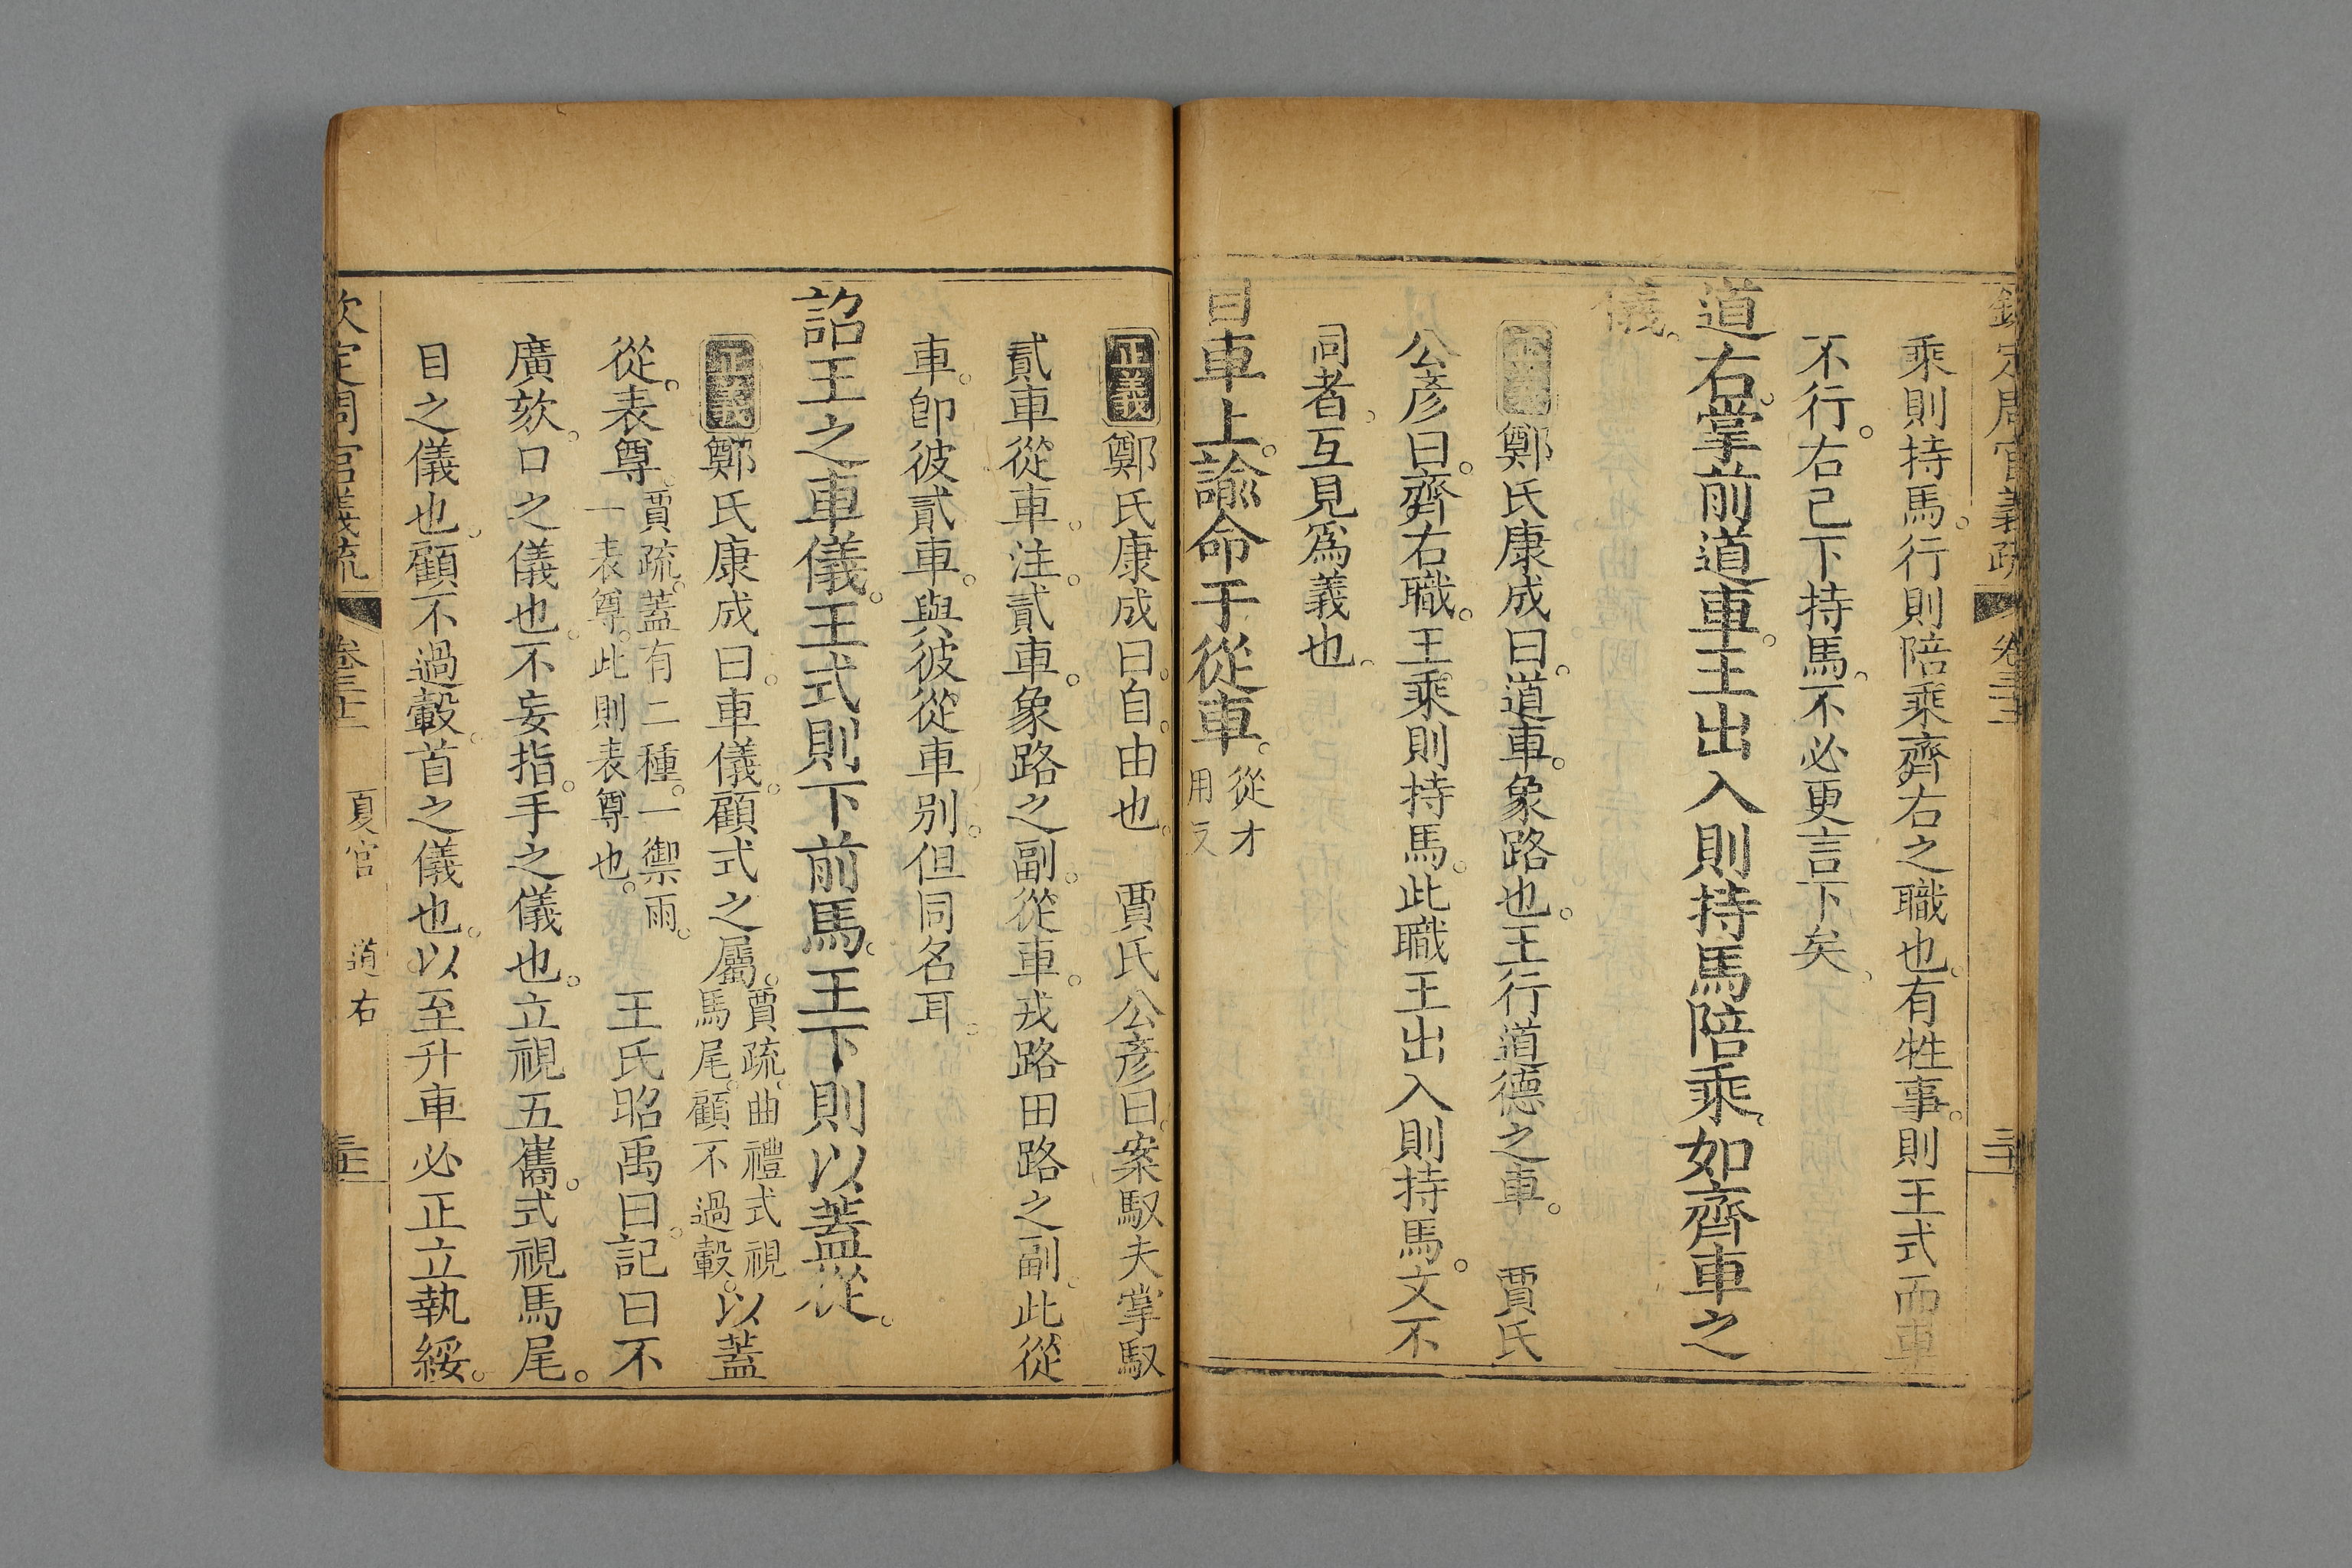 欽定周官義疏 卷三十二 三十
乘則持馬。行則陪乘齊右之職也。有牲事。則王式而車
不行。右已下持馬。不必更言下矣。
道右。掌前道車。王出入則持馬陪乘。如齊車之
儀。
正義 鄭氏康成曰。道車。象路也。王行道德之車。 賈氏
公彥曰。齊右職。王乘則持馬。此職王出入則持馬。文不
同者。互見爲義也。
自車上。諭命于從車。從才用反
正義 鄭氏康成曰。自。由也。 賈氏公彥曰。案馭夫掌馭
貳車從車。注。貳車。象路之副。從車。戎路田路之副。此從
車。卽彼貳車。與彼從車別。但同名耳。
詔王之車儀。王式則下前馬。王下則以蓋從。
正義 鄭氏康成曰。車儀。顧式之屬。賈疏。曲禮式視馬尾。顧不過轂。以蓋
從。表尊。賈疏。蓋有二種。一禦雨。一表尊。此則表尊也。 王氏昭禹曰。記曰不
廣欬。口之儀也。不妄指。手之儀也。立視五巂。式視馬尾。
目之儀也。顧不過轂。首之儀也。以至升車必正立執綏。
欽定周官義疏 卷三十二 夏官 道右